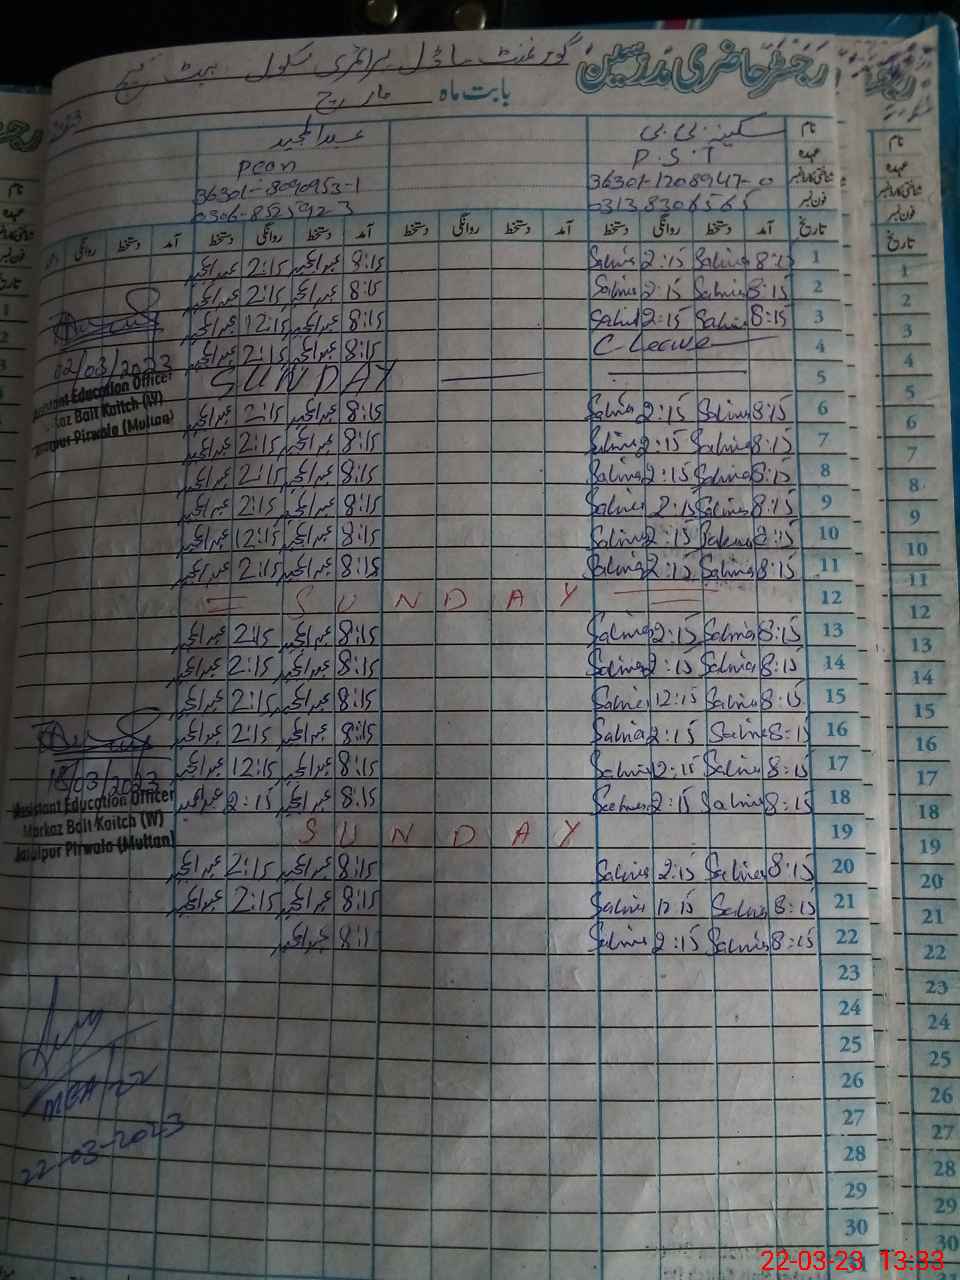 رجسٹر حاضری مدرسین گورنمنٹ ماڈل پرائمری سکول بیٹ کیچ
بابت ماہ مارچ 2023
نام سکینہ بی بی عبدالمجید
عہدہ P.S.T Peon
شناختی کارڈ نمبر 36301-1208947-0 36301-8090953-1
فون نمبر 03138306565 0306-8525923
تاریخ آمد دستخط روانگی دستخط آمد دستخط روانگی دستخط آمد دستخط روانگی دستخط آمد دستخط روانگی
1 8:15 Salma 2:15 Salma 8:15 عبدالمجید 2:15 عبدالمجید
2 8:15 Salma 2:15 Salma 8:15 عبدالمجید 2:15 عبدالمجید
3 8:15 Salma 12:15 Salma 8:15 عبدالمجید 12:15 عبدالمجید
4 C Leave 8:15 عبدالمجید 2:15 عبدالمجید
02/03/2023
5 SUNDAY
Assistant Education Officer
Markaz Bait Kaitch (W)
Jalalpur Pirwala (Multan)
6 8:15 Salma 2:15 Salma 8:15 عبدالمجید 2:15 عبدالمجید
7 8:15 Salma 2:15 Salma 8:15 عبدالمجید 2:15 عبدالمجید
8 8:15 Salma 2:15 Salma 8:15 عبدالمجید 2:15 عبدالمجید
9 8:15 Salma 2:15 Salma 8:15 عبدالمجید 2:15 عبدالمجید
10 8:15 Salma 12:15 Salma 8:15 عبدالمجید 12:15 عبدالمجید
11 8:15 Salma 2:15 Salma 8:15 عبدالمجید 2:15 عبدالمجید
12 SUNDAY
13 8:15 Salma 2:15 Salma 8:15 عبدالمجید 2:15 عبدالمجید
14 8:15 Salma 2:15 Salma 8:15 عبدالمجید 2:15 عبدالمجید
15 8:15 Salma 12:15 Salma 8:15 عبدالمجید 2:15 عبدالمجید
16 8:15 Salma 2:15 Salma 8:15 عبدالمجید 2:15 عبدالمجید
17 8:15 Salma 12:15 Salma 8:15 عبدالمجید 12:15 عبدالمجید
18/03/2023
18 8:15 Salma 2:15 Salma 8:15 عبدالمجید 2:15 عبدالمجید
Assistant Education Officer
Markaz Bait Kaitch (W)
Jalalpur Pirwala (Multan)
19 SUNDAY
20 8:15 Salma 2:15 Salma 8:15 عبدالمجید 2:15 عبدالمجید
21 8:15 Salma 12:15 Salma 8:15 عبدالمجید 2:15 عبدالمجید
22 8:15 Salma 2:15 Salma 8:15 عبدالمجید
23
24
25
26
27
28
29
30
22-03-2023
22-03-23 13:33